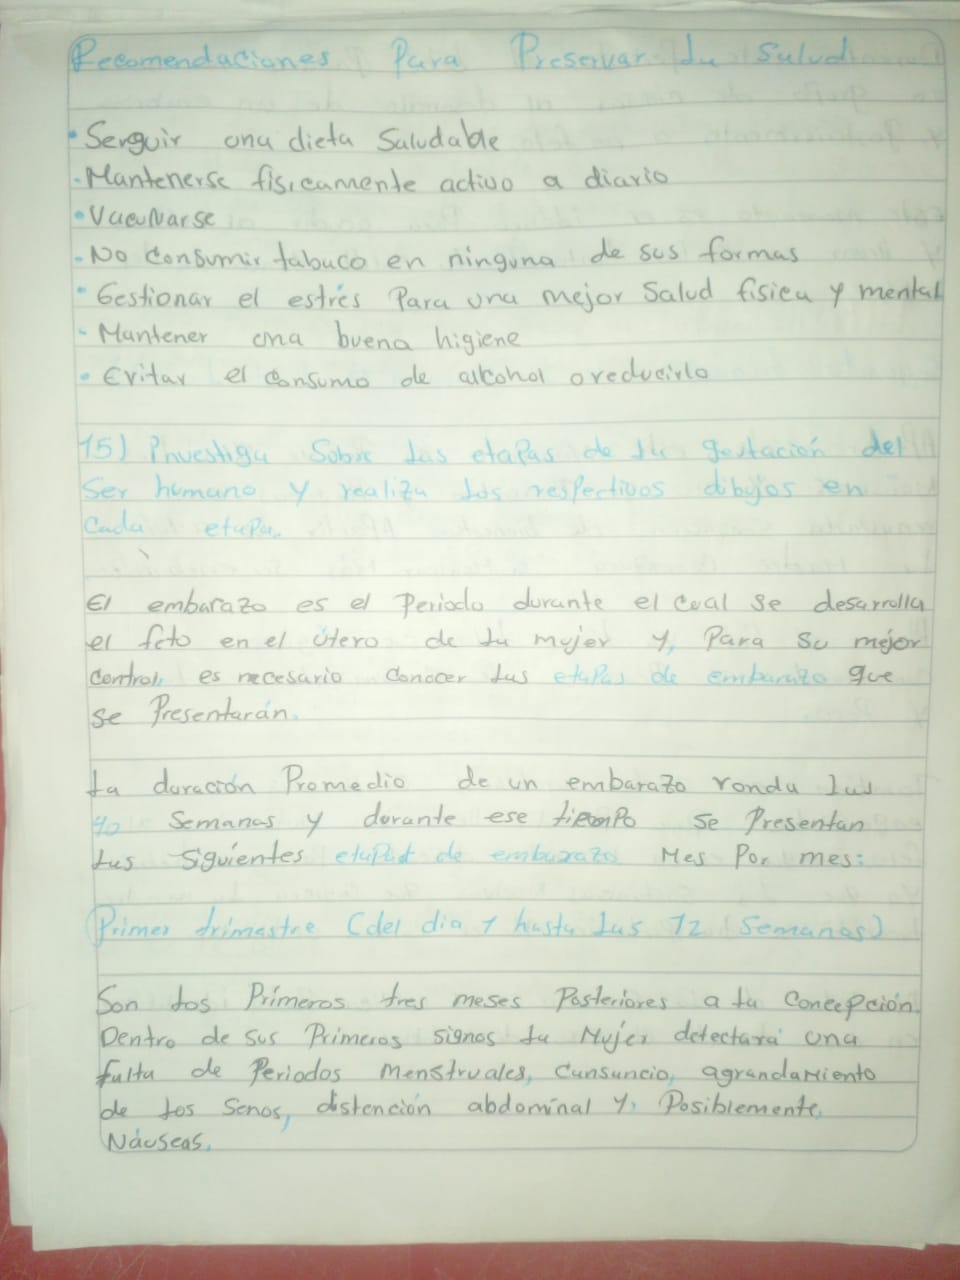 Recomendaciones Para Preservar la Salud
• Serguir una dieta Saludable
• Mantenerse físicamente activo a diario
• Vacunarse
• No Consumir tabaco en ninguna de sus formas
• Gestionar el estrés Para una mejor Salud física y mental
- Mantener una buena higiene
• Evitar el consumo de alcohol o reducirlo
15) Investiga Sobre las etapas de la gestación del
Ser humano y realiza los respectivos dibujos en
Cada etapa.
El embarazo es el Periodo durante el cual se desarrolla
el feto en el útero de la mujer y, Para su mejor
Control, es necesario Conocer las etapas de embarazo que
se Presentarán.
La duración Promedio de un embarazo ronda las
40 Semanas y durante ese tiempo se Presentan
las siguientes etapas de embarazo Mes Por mes:
Primer trimestre (del dia 1 hasta las 12 Semanas)
Son los Primeros tres meses Posteriores a la Concepción.
Dentro de sus Primeros signos la Mujer detectará una
falta de Periodos menstruales, Cansancio, agrandamiento
de los Senos, distención abdominal y, Posiblemente,
Náuseas.